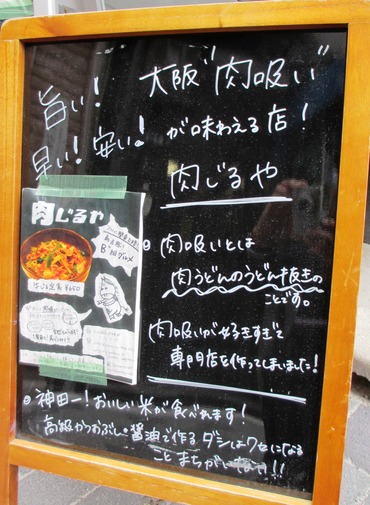 旨い!
早い! 安い!
大阪"肉吸い"
が味わえる店!
肉じるや
肉吸いとは
肉うどんのうどん抜きの
ことです。
肉吸いが好きすぎて
専門店を作ってしまいました!
肉じるや
牛じる定食 ¥650
B級グルメ
神田一!おいしい米が食べれます!
高級かつおぶし・醤油で作るダシはクセになる
ことまちがいない!!